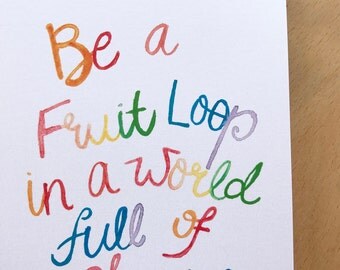 Be a
Fruit Loop
in a world
full of